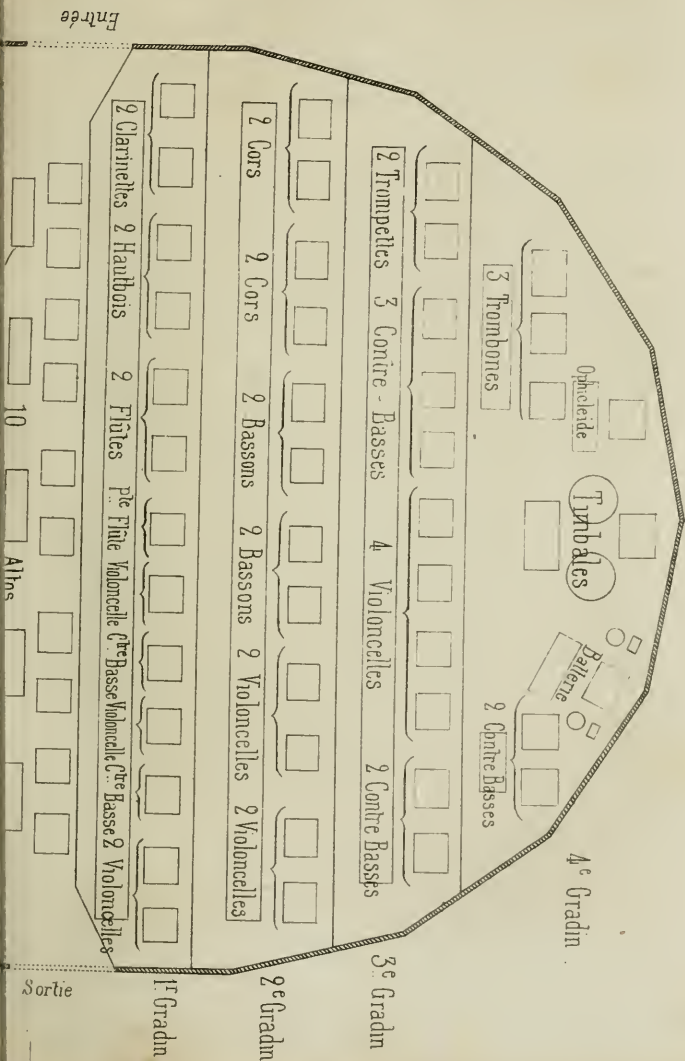 Entrée
Ophicleide
Timbales
Batterie
4e Gradin
3 Trombones
2 Contre Basses
2 Trompettes 3 Contre-Basses 4 Violoncelles 2 Contre Basses
3e Gradin
2 Cors 2 Cors 2 Bassons 2 Bassons 2 Violoncelles 2 Violoncelles
2e Gradin
2 Clarinettes 2 Hautbois 2 Flûtes Pte Flûte Violoncelle Ctre Basse Violoncelle Ctre Basse 2 Violoncelles
1r Gradin
10 Altos
Sortie